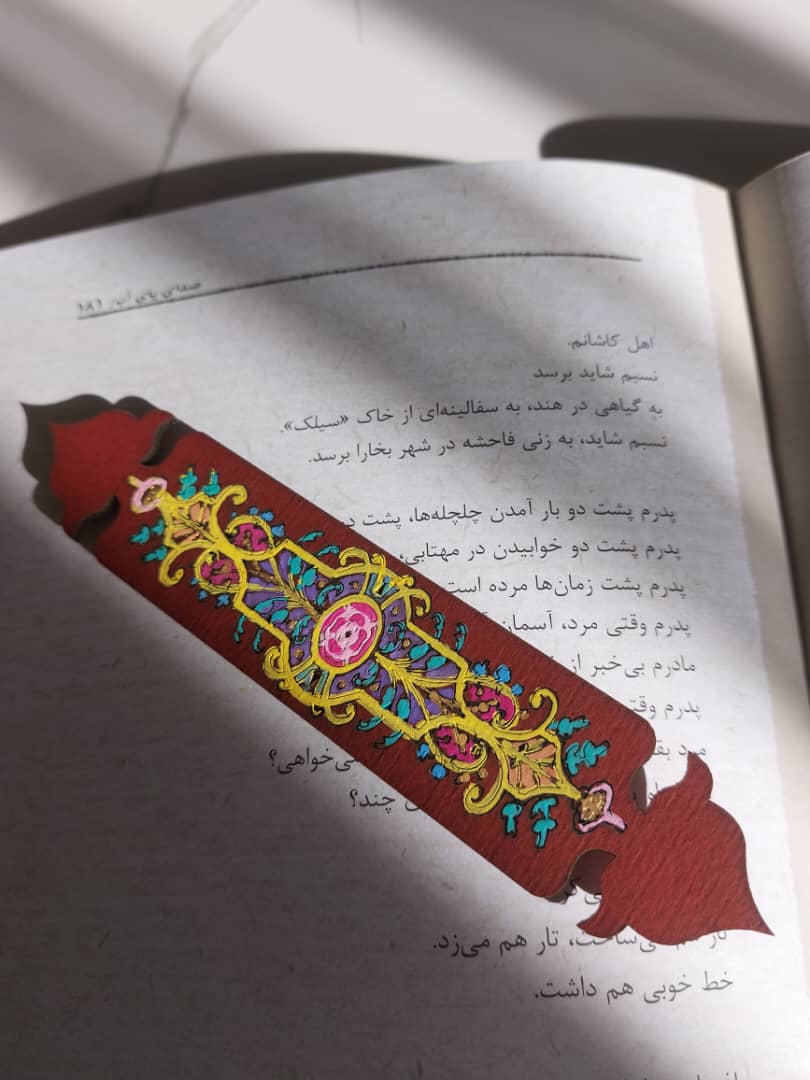 صدای پای آب / ۱۸۱
اهل کاشانم.
نسبم شاید برسد
به گیاهی در هند، به سفالینه‌ای از خاک «سیلک».
نسبم شاید، به زنی فاحشه در شهر بخارا برسد.
پدرم پشت دو بار آمدن چلچله‌ها، پشت
پدرم پشت دو خوابیدن در مهتابی،
پدرم پشت زمان‌ها مرده است
پدرم وقتی مرد، آسمان
مادرم بی‌خبر از
پدرم وقتی
مرد
می‌خواهی؟
چند؟
می‌ساخت، تار هم می‌زد.
خط خوبی هم داشت.